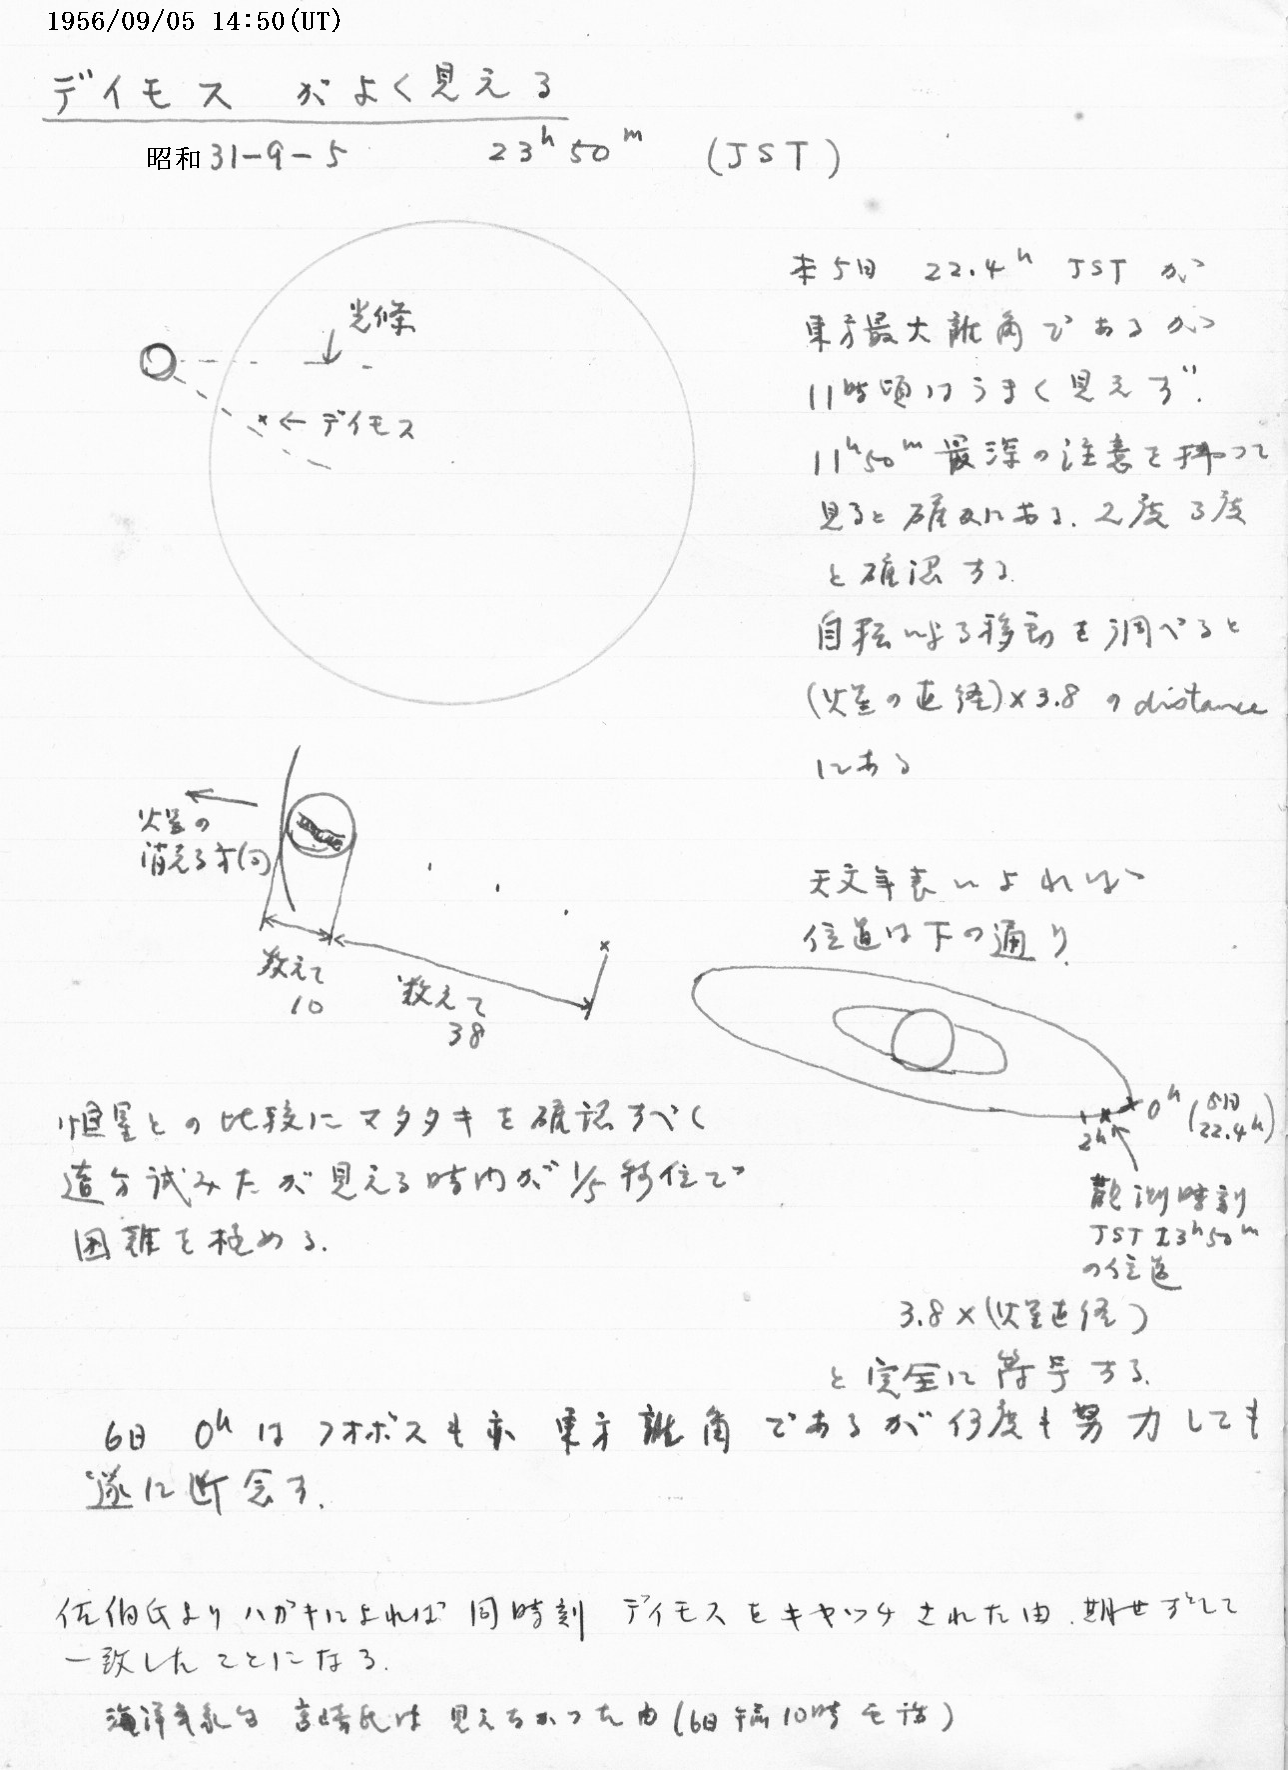 1956/09/05 14:50(UT)
デイモス がよく見える
昭和31-9-5 23h50m (JST)
光條
デイモス
本5日 22.4h JST が
東方最大離角であるが
11時頃はうまく見えず.
11h50m 最深の注意を持って
見ると確かにある. 2度3度
と確認する.
自転による移動を調べると
(火星の直径)×3.8 の distance
にある
火星の
消える方向
数えて
10
数えて
38
天文年表によれば
位置は下の通り
0h (5日 22.4h)
2h
観測時刻
JST 23h50m
の位置
3.8×(火星直径)
と完全に符号する.
恒星との比較にマタタキを確認すべく
随分試みたが見える時間が1/5秒位で
困難を極める.
6日 0hはフオボスも亦 東方離角であるが何度も努力しても
遂に断念す.
佐伯氏よりハガキによれば 同時刻 デイモスをキヤッチされた由. 期せずして
一致したことになる.
海洋気象台 宮崎氏は見えなかった由(6日午前10時電話)